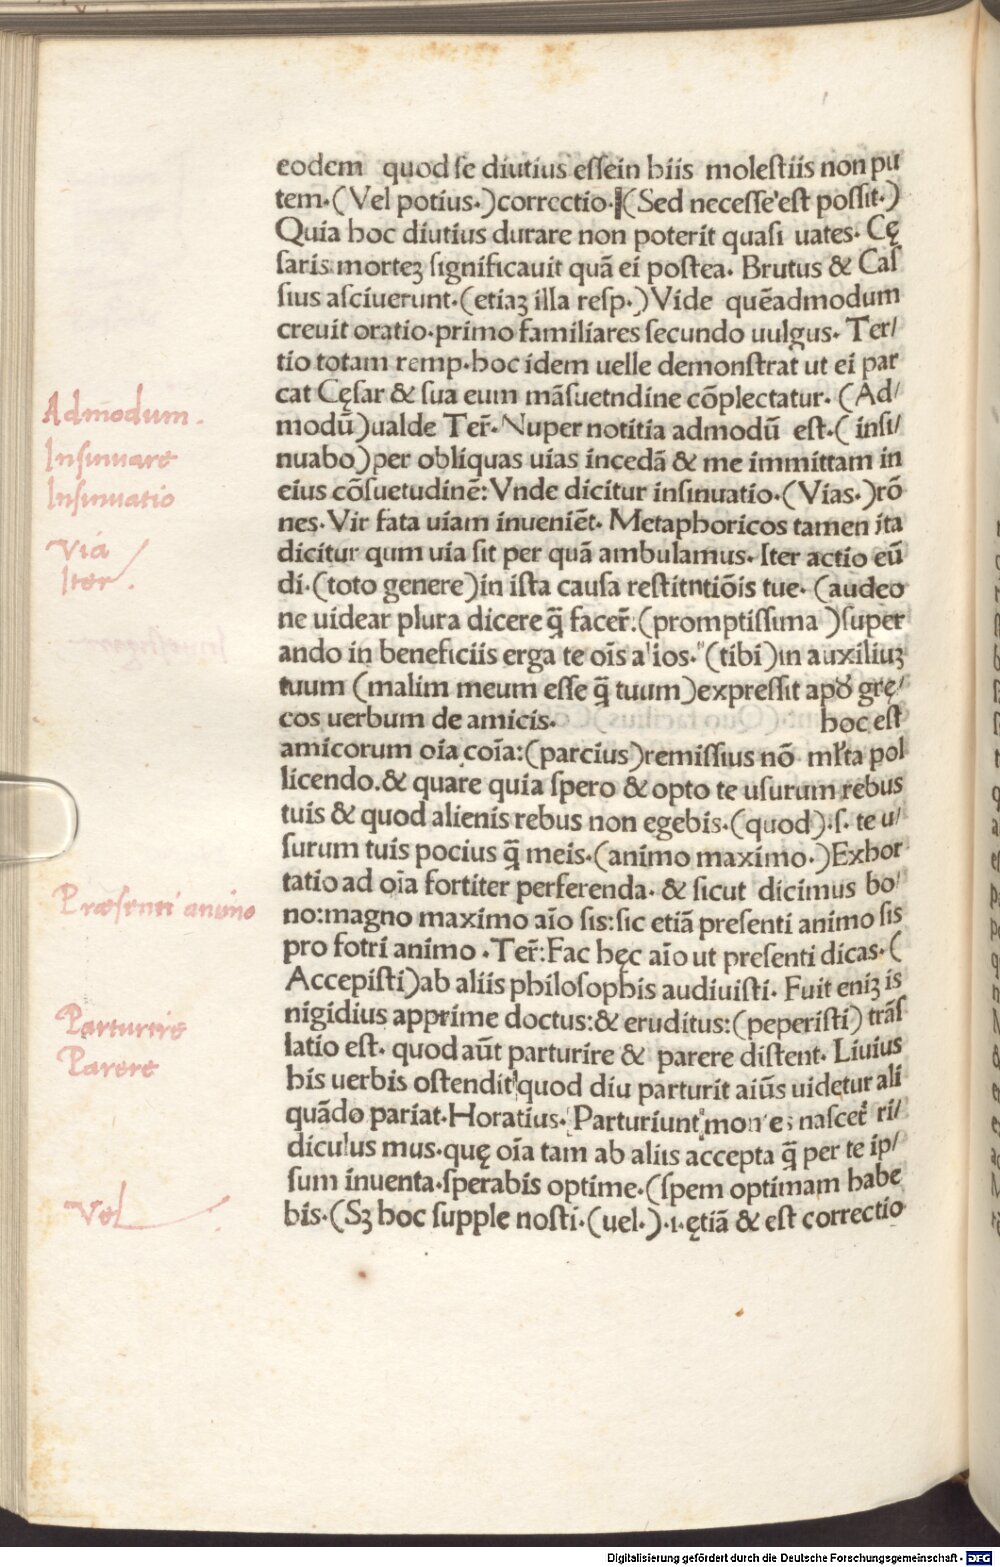 eodem quod se diutius essein hiis molestiis non pu
tem·(Vel potius·)correctio·(Sed necesse est possit·)
Quia hoc diutius durare non poterit quasi uates· Cę
saris morteʒ significauit quā ei postea· Brutus & Cas
sius asciuerunt·(etiaʒ illa resp·)Vide quēadmodum
creuit oratio·primo familiares secundo uulgus· Ter/
tio totam remp·hoc idem uelle demonstrat ut ei par
cat Cęsar & sua eum māsuetndine cōplectatur· (Ad/
modū)ualde Ter̄· Nuper notitia admodū est·( insi/
nuabo)per obliquas uias incedā & me immittam in
eius cōsuetudinē: Vnde dicitur insinuatio·(Vias·)rō
nes· Vir fata uiam inueniēt· Metaphoricos tamen ita
dicitur qum uia sit per quā ambulamus· Iter actio eū
di·(toto genere)in ista causa restitntiōis tue· (audeo
ne uidear plura dicere q̄ facer̄:(promptissima )super
ando in beneficiis erga te oīs a'ios· (tibi)in auxiliuʒ
tuum (malim meum esse q̄ tuum)expressit apđ grę/
cos uerbum de amicis· hoc est
amicorum oīa coīa:(parcius)remissius nō mlta pol
licendo.& quare quia spero & opto te usurum rebus
tuis & quod alienis rebus non egebis·(quod)·s· te u/
surum tuis pocius q̄ meis·(animo maximo·)Exhor
tatio ad oīa fortiter perferenda· & sicut dicimus bo/
no:magno maximo aīo sis:sic etiā presenti animo sis
pro fotri animo ·Ter̄:Fac hęc aīo ut presenti dicas·(
Accepisti)ab aliis philosophis audiuisti· Fuit eniʒ is
nigidius apprime doctus:& eruditus:(peperisti) trās
latio est· quod aūt parturire & parere distent· Liuius
his uerbis ostendit quod diu parturit aiūs uidetur ali
quādo pariat·Horatius· Parturiunt mon es nascet̄ ri/
diculus mus·quę oīa tam ab aliis accepta q̄ per te ip/
sum inuenta·sperabis optime·(spem optimam habe
bis·(Sʒ hoc supple nosti·(uel·)·i·ętiā & est correctio
Admodum.
Insinuare
Insinuatio
Via
Iter.
Præsenti animo
Parturire
Parere
Vel
Digitalisierung gefördert durch die Deutsche Forschungsgemeinschaft - DFG